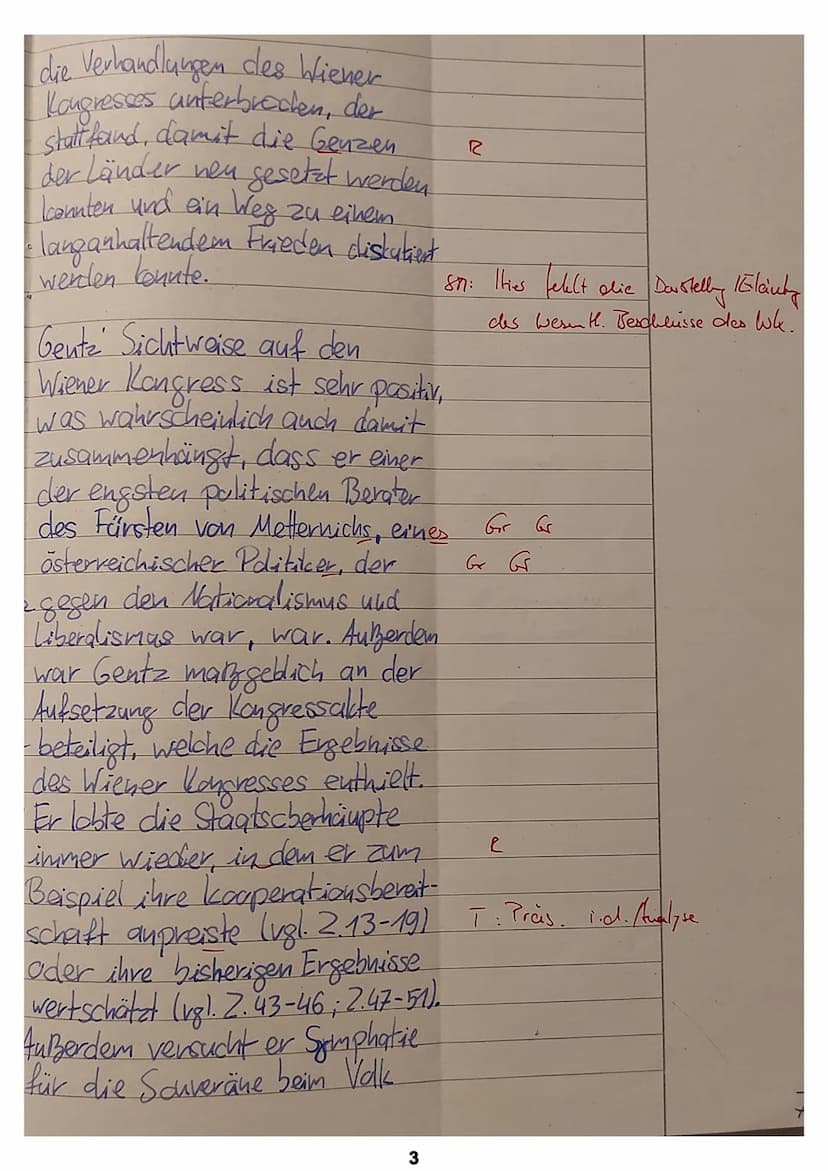 die Verhandlungen des Wiener
Kongresses unterbrochen, der
stattfand, damit die Genzen R
der Länder neu gesetzt werden
konnten und ein Weg zu einem
langanhaltendem Frieden diskutiert
werden konnte. sn: Hier fehlt die Darstellg /Erläutg
des wesentl. Beschlüsse des Wk.
Gentz' Sichtweise auf den
Wiener Kongress ist sehr positiv,
was wahrscheinlich auch damit
zusammenhängt, dass er einer
der engsten politischen Berater
des Fürsten von Metternichs, eines Gr Gr
österreichischer Politiker, der Gr Gr
gegen den Nationalismus und
Liberalismus war, war. Außerdem
war Gentz maßgeblich an der
Aufsetzung der Kongressakte
beteiligt, welche die Ergebnisse
des Wiener Kongresses enthielt.
Er lobte die Staatsoberhäupte
immer wieder, in dem er zum R
Beispiel ihre Kooperationsbereit-
schaft anpreiste (vgl. Z.13-19) T: Präs. i.d. Analyse
oder ihre bisherigen Ergebnisse
wertschätzt (vgl. Z.43-46; Z.47-51).
Außerdem versucht er Symphatie
für die Souveräne beim Volk
3